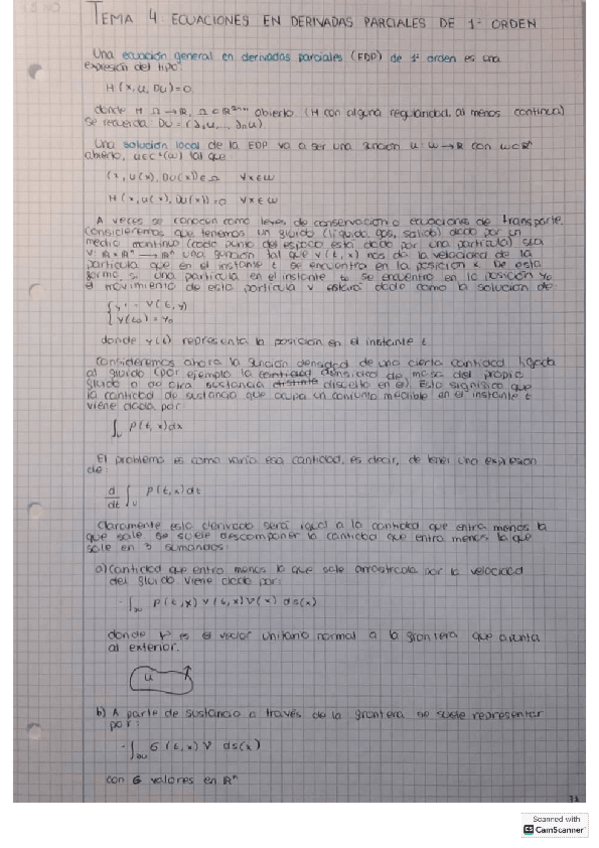 TEMA 4 ECUACIONES EN DERIVADAS PARCIALES DE 1º ORDEN
Una ecuación general en derivadas parciales (EDP) de 1º orden es una
expresión del tipo:
H(x,u,Du)=0
donde H: Ω→ℝ, Ω⊂ℝ²ⁿ⁺¹ abierto (H con alguna regularidad, al menos continua)
Se recuerda Du = (∂₁u,..., ∂ₙu)
Una solución local de la EDP va a ser una función u: ω→ℝ con ω⊂ℝⁿ
abierto, u∈C¹(ω) tal que
(x, u(x), Du(x))∈Ω ∀x∈ω
H(x,u(x), Du(x))=0 ∀x∈ω
A veces se conocen como leyes de conservación o ecuaciones de transporte.
Consideremos que tenemos un fluido (líquido, gas, sólido) dado por un
medio continuo (cada punto del espacio está dado por una partícula) sea
v: ℝ×ℝⁿ→ℝⁿ una función tal que v(t,x) nos da la velocidad de la
partícula que en el instante t se encuentra en la posición x. De esta
forma si una partícula en el instante t₀ se encuentra en la posición y₀
el movimiento de esta partícula v estará dado como la solución de:
{ y' = v(t,y)
y(t₀) = y₀
donde y(t) representa la posición en el instante t.
Consideremos ahora la función densidad de una cierta cantidad ligada
al fluido (por ejemplo la cantidad densidad de masa del propio
fluido o de otra sustancia distinta disuelta en él). Esto significa que
la cantidad de sustancia que ocupa un conjunto medible en el instante t
viene dada por:
∫ᵤ ρ(t,x)dx
El problema es como varía esa cantidad, es decir, de tener una expresión
de:
d/dt ∫ᵤ ρ(t,x)dt
Claramente esta derivada será igual a la cantidad que entra menos la
que sale. Se suele descomponer la cantidad que entra menos la que
sale en 3 sumandos:
a) Cantidad que entra menos la que sale arrastrada por la velocidad
del fluido. Viene dada por:
-∫∂ᵤ ρ(t,x) v(t,x) ν(x) ds(x)
donde ν es el vector unitario normal a la frontera que apunta
al exterior.
u
b) A parte de sustancia a través de la frontera se suele representar
por:
-∫∂ᵤ G(t,x) ν ds(x)
con G valores en ℝⁿ
Scanned with
CamScanner